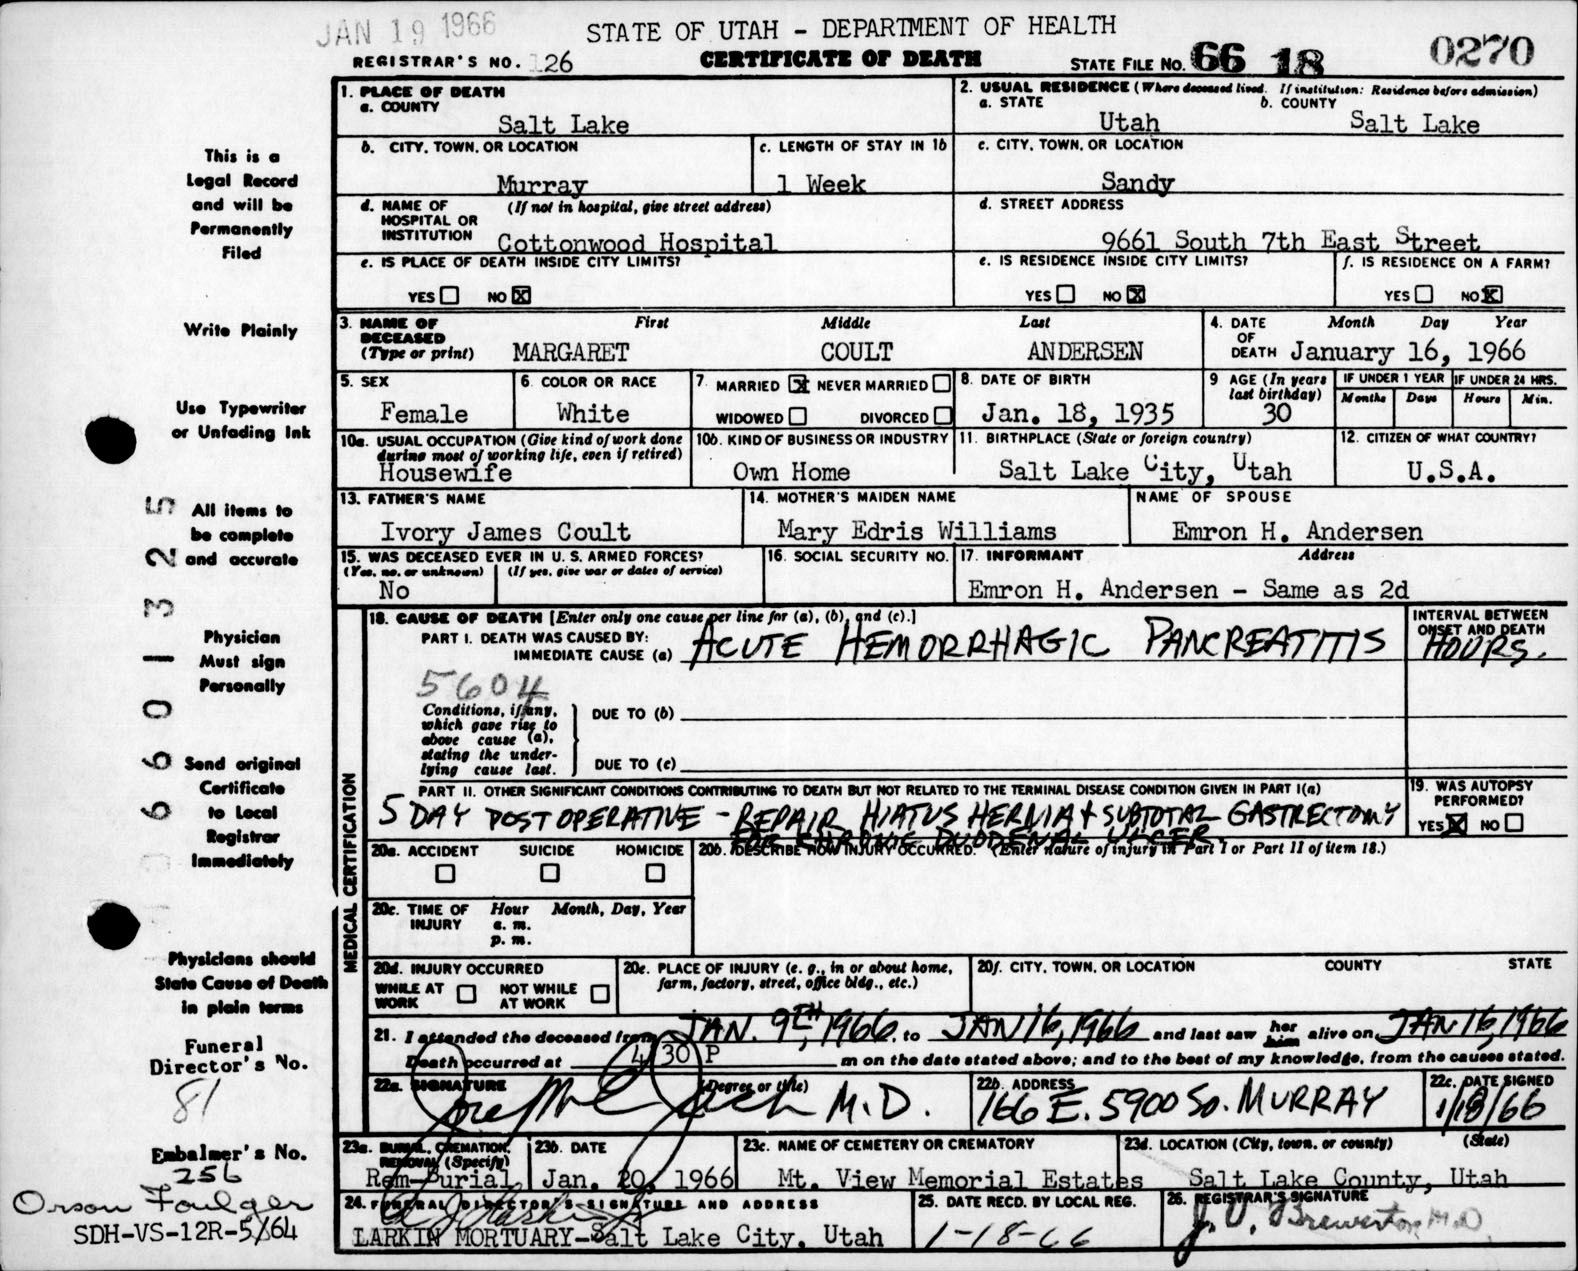 JAN 19 1966
STATE OF UTAH - DEPARTMENT OF HEALTH
REGISTRAR'S NO. 126
CERTIFICATE OF DEATH
STATE FILE NO. 66 18 0270
1. PLACE OF DEATH
a. COUNTY
Salt Lake
2. USUAL RESIDENCE (Where deceased lived. If institution: Residence before admission)
a. STATE b. COUNTY
Utah Salt Lake
b. CITY, TOWN, OR LOCATION
Murray
c. LENGTH OF STAY IN 1b
1 Week
c. CITY, TOWN, OR LOCATION
Sandy
d. NAME OF HOSPITAL OR INSTITUTION (If not in hospital, give street address)
Cottonwood Hospital
d. STREET ADDRESS
9661 South 7th East Street
e. IS PLACE OF DEATH INSIDE CITY LIMITS?
YES NO X
e. IS RESIDENCE INSIDE CITY LIMITS?
YES NO X
f. IS RESIDENCE ON A FARM?
YES NO X
3. NAME OF DECEASED (Type or print)
First Middle Last
MARGARET COULT ANDERSEN
4. DATE OF DEATH
Month Day Year
January 16, 1966
5. SEX
Female
6. COLOR OR RACE
White
7. MARRIED X NEVER MARRIED
WIDOWED DIVORCED
8. DATE OF BIRTH
Jan. 18, 1935
9 AGE (In years last birthday)
30
IF UNDER 1 YEAR
Months Days
IF UNDER 24 HRS.
Hours Min.
10a. USUAL OCCUPATION (Give kind of work done during most of working life, even if retired)
Housewife
10b. KIND OF BUSINESS OR INDUSTRY
Own Home
11. BIRTHPLACE (State or foreign country)
Salt Lake City, Utah
12. CITIZEN OF WHAT COUNTRY?
U.S.A.
13. FATHER'S NAME
Ivory James Coult
14. MOTHER'S MAIDEN NAME
Mary Edris Williams
NAME OF SPOUSE
Emron H. Andersen
15. WAS DECEASED EVER IN U. S. ARMED FORCES?
(Yes, no, or unknown) (If yes, give war or dates of service)
No
16. SOCIAL SECURITY NO.
17. INFORMANT Address
Emron H. Andersen - Same as 2d
18. CAUSE OF DEATH [Enter only one cause per line for (a), (b), and (c).]
PART I. DEATH WAS CAUSED BY:
IMMEDIATE CAUSE (a) ACUTE HEMORRHAGIC PANCREATITIS
INTERVAL BETWEEN ONSET AND DEATH
HOURS.
5604
Conditions, if any, which gave rise to above cause (a), stating the underlying cause last.
DUE TO (b)
DUE TO (c)
PART II. OTHER SIGNIFICANT CONDITIONS CONTRIBUTING TO DEATH BUT NOT RELATED TO THE TERMINAL DISEASE CONDITION GIVEN IN PART I(a)
5 DAY POSTOPERATIVE - REPAIR HIATUS HERNIA & SUBTOTAL GASTRECTOMY
FOR CHRONIC DUODENAL ULCER.
19. WAS AUTOPSY PERFORMED?
YES X NO
20a. ACCIDENT SUICIDE HOMICIDE
20b. DESCRIBE HOW INJURY OCCURRED. (Enter nature of injury in Part I or Part II of item 18.)
20c. TIME OF INJURY
Hour Month, Day, Year
a. m.
p. m.
20d. INJURY OCCURRED
WHILE AT WORK NOT WHILE AT WORK
20e. PLACE OF INJURY (e. g., in or about home, farm, factory, street, office bldg., etc.)
20f. CITY, TOWN, OR LOCATION COUNTY STATE
21. I attended the deceased from JAN. 9TH, 1966, to JAN 16, 1966 and last saw her him alive on JAN 16, 1966
Death occurred at 4 30 P m on the date stated above; and to the best of my knowledge, from the causes stated.
22a. SIGNATURE (Degree or title)
M.D.
22b. ADDRESS
166 E. 5900 So. MURRAY
22c. DATE SIGNED
1/18/66
23a. BURIAL, CREMATION, REMOVAL (Specify)
Rem-Burial
23b. DATE
Jan. 20, 1966
23c. NAME OF CEMETERY OR CREMATORY
Mt. View Memorial Estates
23d. LOCATION (City, town, or county) (State)
Salt Lake County, Utah
24. FUNERAL DIRECTOR'S SIGNATURE AND ADDRESS
LARKIN MORTUARY-Salt Lake City, Utah
25. DATE RECD. BY LOCAL REG.
1-18-66
26. REGISTRAR'S SIGNATURE
J. V. Brewerton, M.D.
MEDICAL CERTIFICATION
This is a
Legal Record
and will be
Permanently
Filed
Write Plainly
Use Typewriter
or Unfading Ink
All items to
be complete
and accurate
Physician
Must sign
Personally
Send original
Certificate
to Local
Registrar
Immediately
Physicians should
State Cause of Death
in plain terms
Funeral
Director's No.
81
Embalmer's No.
256
Orson Foulger
SDH-VS-12R-5/64
6 6 0 1 3 2 5